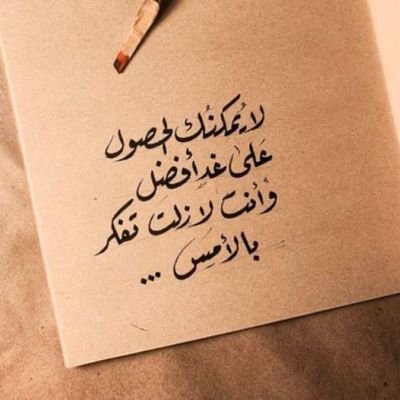 لا يُمكنُك الحصول
عَلى غدٍ أفضل
وَأنت لا زلت تفكر
بالأمسِ ...